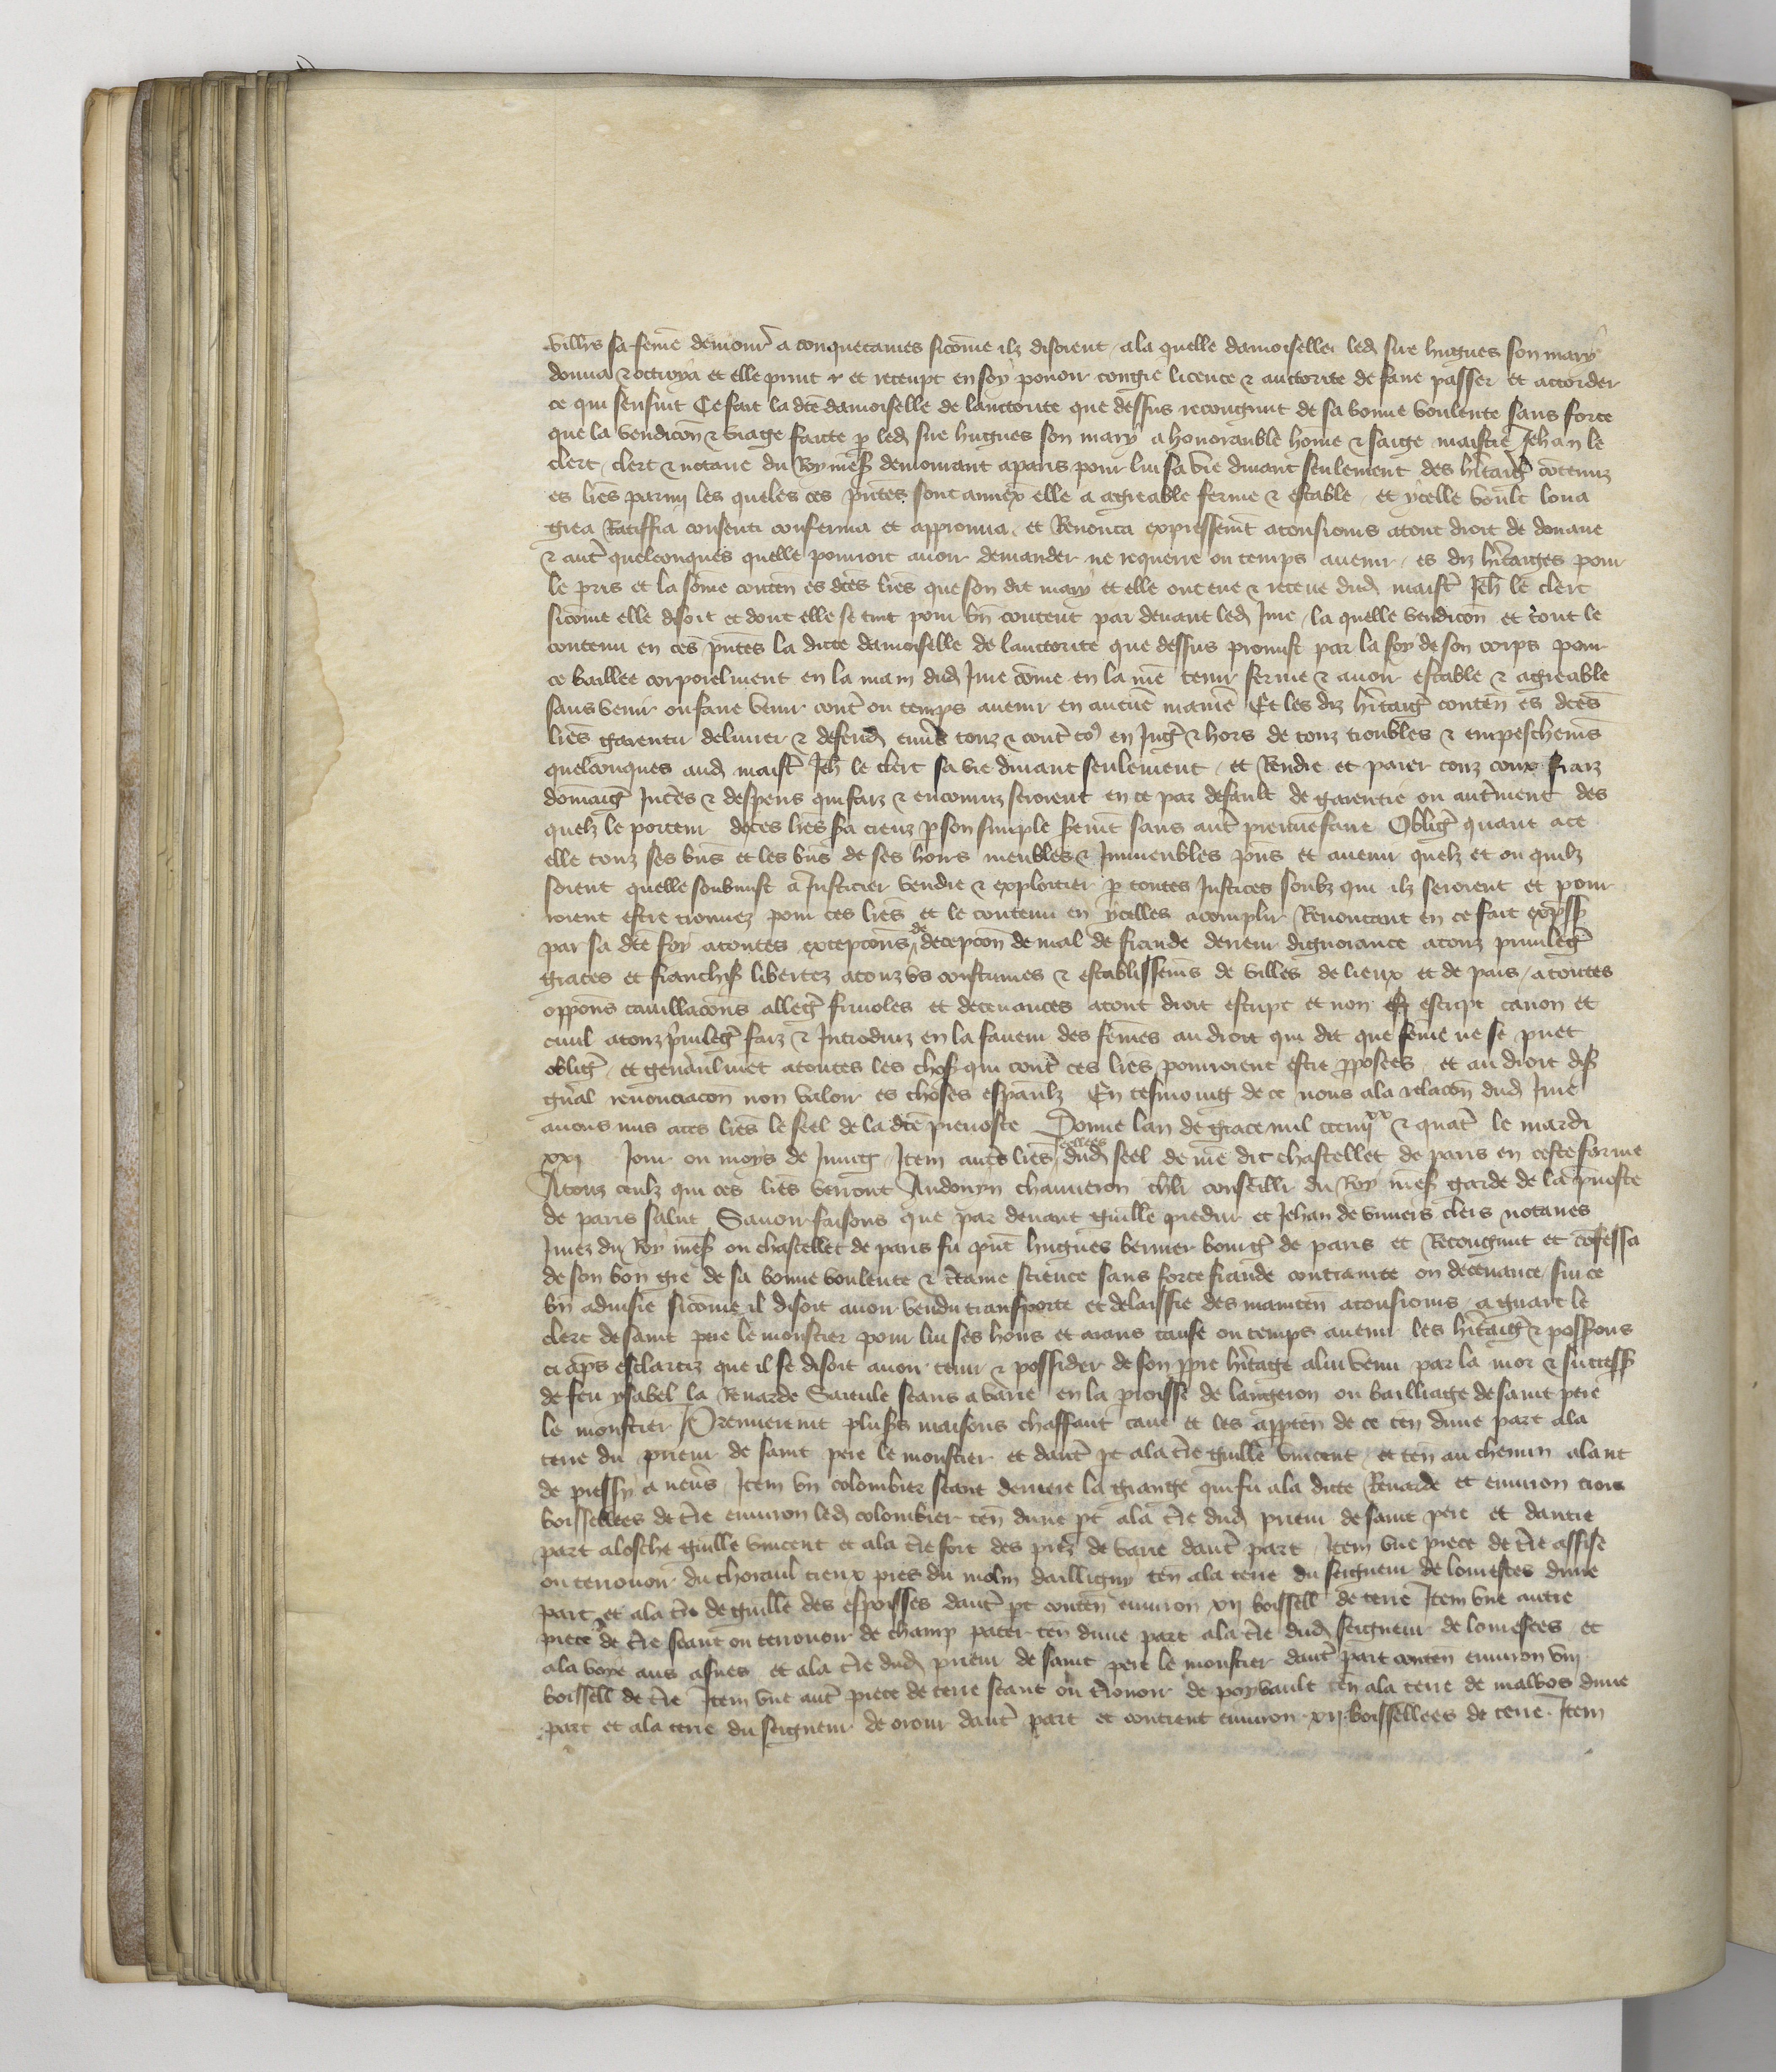 villrs sa feme demour a conquecames sicome ilz disoient ala quelle damoiselle led sire hugues son mary
donna & octroya et elle prinst et receupt en soy povoir congie licence & auctorite de faire passer et accorder
ce qui sensuit Ce fait la dte damoiselle de lauctorite que dessus recongnut de sa bonne voulente sans force
que la vendicon & viage faicte p led sire hugues son mary a honorauble home & saige maistre Jehan le
clerc clerc & notaire du Roy nres demourant a paris pour lui sa vie durant seulement des hritaig contenuz
es lres parmy les queles ces pntes sont annex elle a agreable ferme & estable et ycelle voult loua
grea Ratiffia consenti conferma et approuua et Renonca expressemt atousiours atout droit de douaire
& autr quelconques quelle pourroit auoir demander ne requerre ou temps auenir es diz hritaiges pour
le pris et la some conten es dces lres que son dit mary et elle ont eue & receue dud maistr Jeh le clerc
sicome elle disoit et dont elle se tint pour bn contente par deuant led Jure la quelle vendicon et tout le
contenu en ces pntes la dicte damoiselle de lauctorite que dessus promist par la foy de son corps pour
ce baillee corporelment en la main dud Jure come en la nre tenir ferme & auoir estable & agreable
sans venir ou faire venir contr ou temps auenir en aucune maniere Et les diz hritaig conten es dces
lres garentir deliurer & defendr enurs touz & contr tos en Jug & hors de touz troubles & empeschems
quelconques aud maistr Jeh le clerc sa vie durant seulement et Rendre et paier touz coux fraiz
domaig Intres & despens qui faiz & encouruz seroient en ce par default de garentie ou autrement des
quelz le porteur deces lres sra creuz p son simple sermt sans autr preuue faire Oblig quant ace
elle touz ses bns et les bns de ses hoirs meubles & Immeubles pns et auenir quelz et ou quilz
soient quelle soubmist a Justicier vendre & exploitier p toutes Justices soubz qui ilz seroient et pour
roient estre trouuez pour ces lres et le contenu en ycelles acomplir Renoncant en ce fait expss
par sa dte foy atoutes excepcons de decepcon de mal de fraude derreur dignorance atouz priuileg
graces et franchis libertez atouz vs coustumes & establissems de villes de lieux et de pais atoutes
oppons cauillacons alleg friuoles et deceuances atout droit escript et non escript canon et
ciuil atouz priuileg faiz & Introduiz en la faueur des femes au droit qui dit que feme ne se puet
oblig et genralmet atoutes les chos qui contr ces lres pourroient estre pposees et au droit dis
gnral renonciacon non valoir es choses espaulz En tesmoing de ce nous ala relacon dud Jure
auons mis aces lres le seel de la dte preuoste Donne lan de grace mil ccc iiijxx & quatr le mardi
xxj Jour ou moys de Juing Item autrs lres seellees dud seel de nre dit chastellet de paris en ceste forme
Atouz ceulz qui ces lres verront Audouyn chauueron chlr conseillr du Roy nres garde de la puoste
de paris salut Sauoir faisons que par deuant guille piedur et Jehan de viuiers clers notaires
Jurez du Roy nres ou chastellet de paris fu pnt hugues bernier bourg de paris et Recongnut et cofessa
de son bon gre de sa bonne voulente & crtaine science sans force fraude contrainte ou deceuance sur ce
bn aduisie sicome il disoit auoir vendu transporte et delaissie des mainten atousiours a guart le
clerc de saint pere le monstier pour lui ses hoirs et aians cause ou temps auenir les hritaig & possons
ci aps esclarciz que il se disoit auoir tenir & possider de son ppre hritage alui venu par la mor & success
de feu ysabel la Renarde Saieule seans a varie en la proisse de langeron ou bailliage de saint pere
le monstier Premieremt plusrs maisons chassant caue et les apprten de ce ten dune part ala
terre du prieur de saint pere le monstier et dautr pt ala tre guille vincent et ten au chemin alant
de pressy a neurs Item vn colombier seant derriere la grange qui fu ala dicte Renarde et enuiron trois
boissellees de tre enuiron led colombier ten dune pt ala tre dud prieur de saint pere et dautre
part alosche guille vincent et ala tre soit des prez de varie dautr part Item vne piece de tre assise
ou terrouoir du choraul creux pres du molin dailligny ten ala terre du seigneur de lomestes dune
part et ala tre de guille des espoisses dautr pt conten enuiron xij boissell de terre Item vne autre
piece de tre seant ou terrouoir de champ pater ten dune part ala tre dud seigneur de lomestes et
ala voye aus asnes et ala tre dud prieur de saint pere le monstier dautr part conten enuiron viij
boissell de tre Item vne autr piece de terre seant ou trouoir de poyvault ten ala terre de malvos dune
part et ala terre du seigneur de orour dautr part et contient enuiron xij boissellees de terre Item